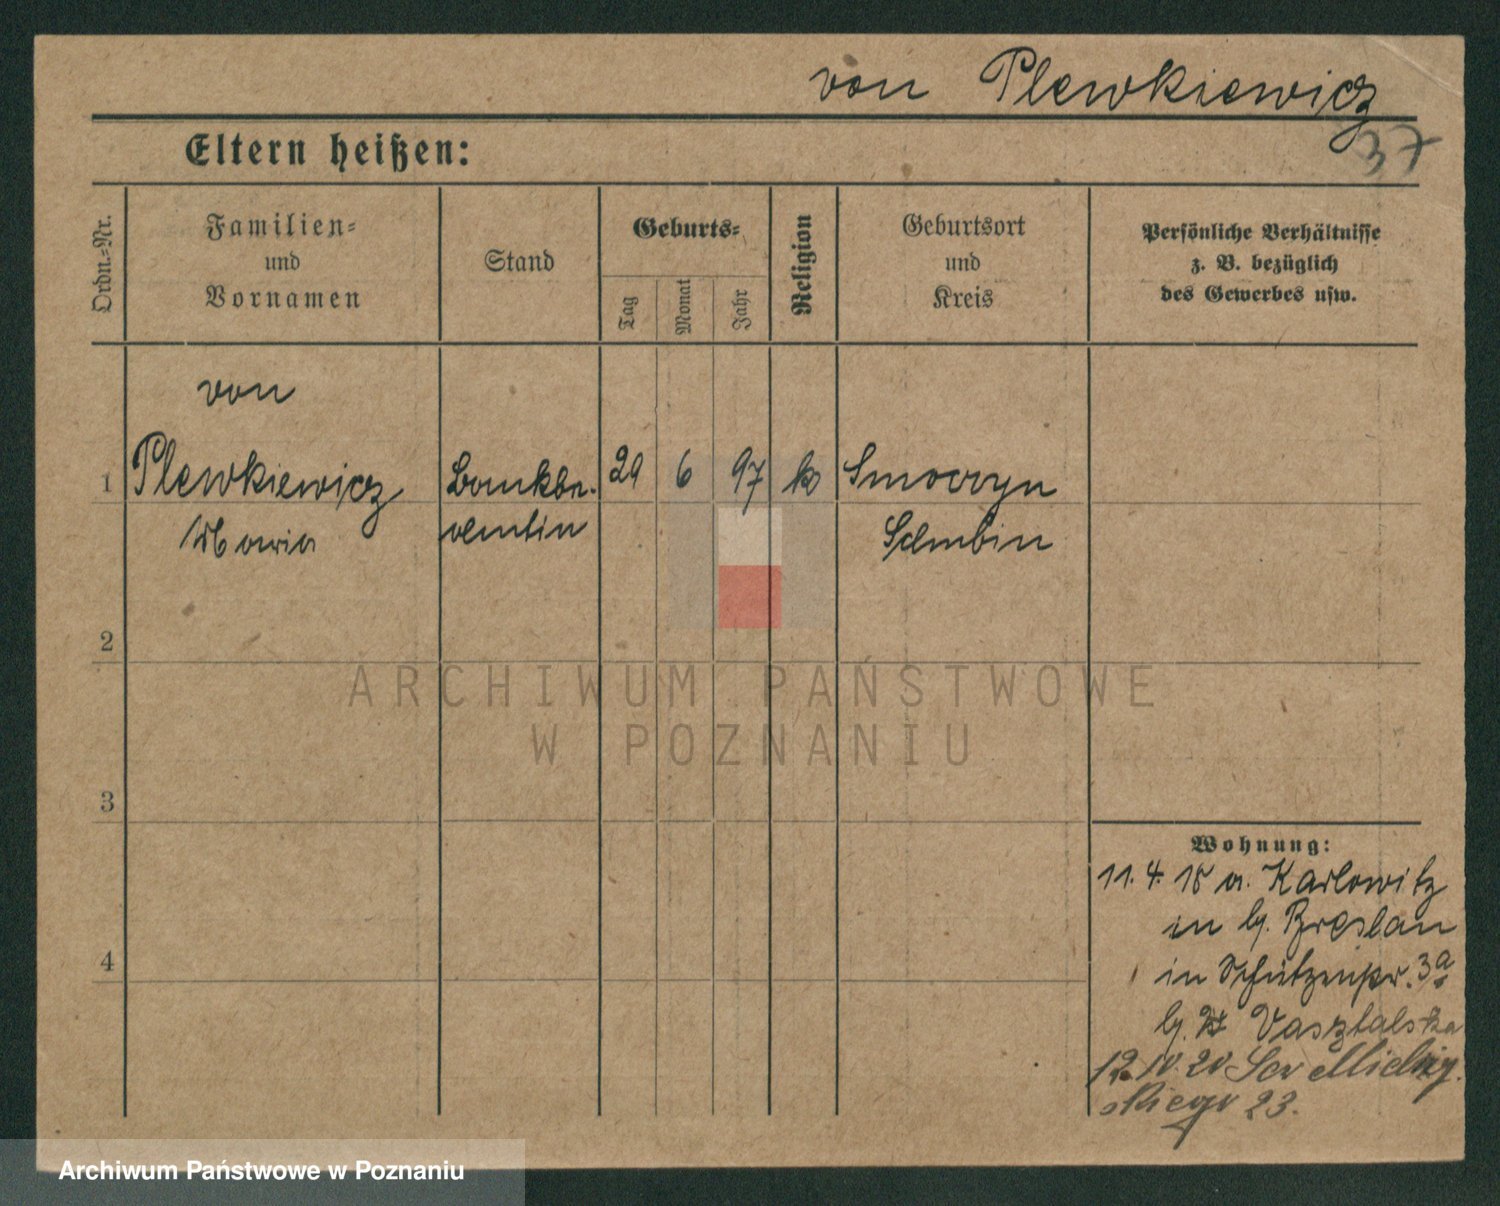 von Plewkiewicz
37
Eltern heißen:
Ordn.-Nr.
Familien-
und
Vornamen
Stand
Geburts-
Tag
Monat
Jahr
Religion
Geburtsort
und
Kreis
Persönliche Verhältnisse
z. B. bezüglich
des Gewerbes usw.
von
1 Plewkiewicz Bankbe- 29 6 97 k Smoczyn
Maria amtin Schubin
2
3
4
Wohnung:
11. 4. 18 a. Karlowitz
in b. Breslau
in Schützenstr. 3a
b. Vasztalska
12. 10. 20 Sew Mielzy.
skiego 23.
ARCHIWUM PAŃSTWOWE
W POZNANIU
Archiwum Państwowe w Poznaniu